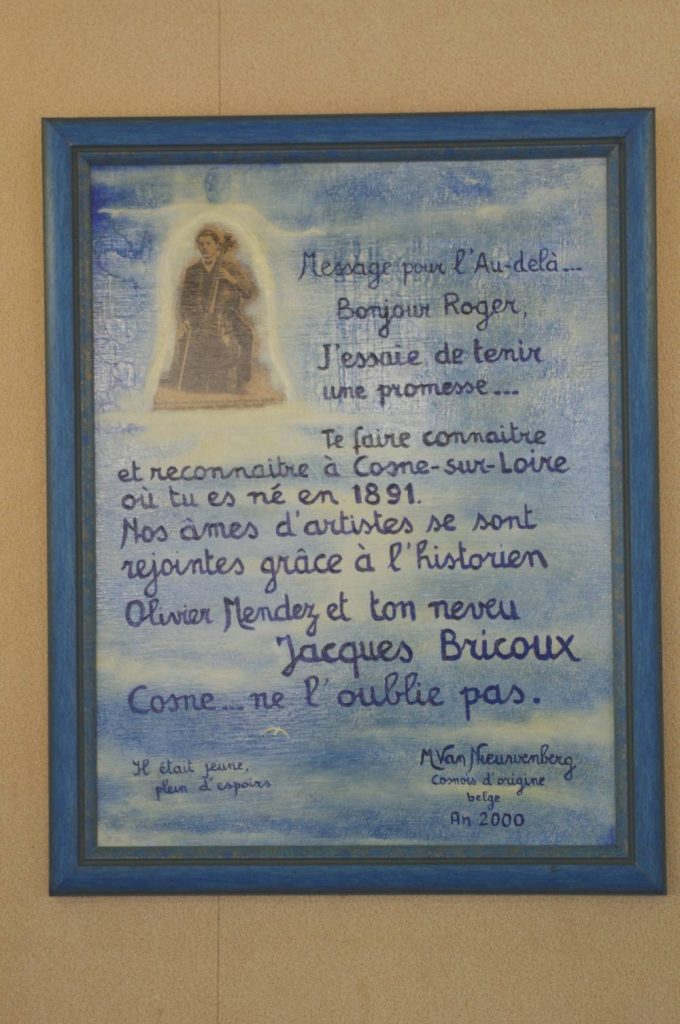 Message pour l'Au-delà...
Bonjour Roger,
J'essaie de tenir
une promesse...
Te faire connaitre
et reconnaitre à Cosne-sur-Loire
où tu es né en 1891.
Nos âmes d'artistes se sont
rejointes grâce à l'historien
Olivier Mendez et ton neveu
Jacques Bricoux
Cosne... ne l'oublie pas.
Il était jeune,
plein d'espoirs
M. Van Nieurvenberg
Cosnois d'origine
belge
An 2000